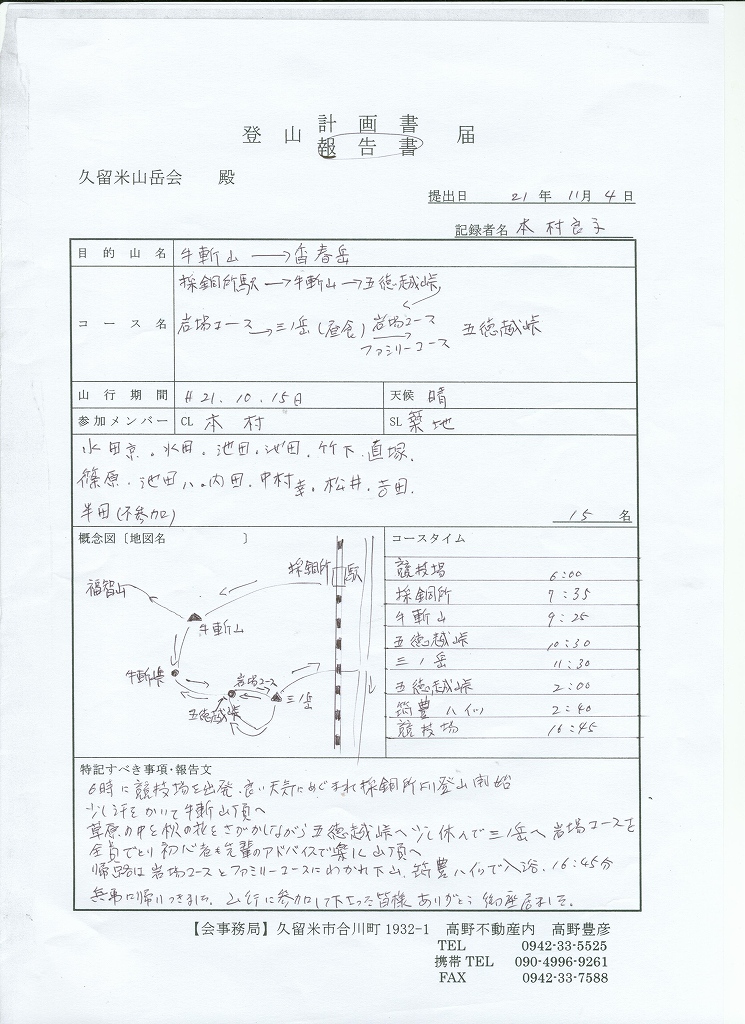 登山 計画書 届
報告書
久留米山岳会 殿
提出日 21年 11月 4日
記録者名 本村良子
目的山名 牛斬山→香春岳
コース名 採銅所駅→牛斬山→五徳越峠
岩場コース→三ノ岳(昼食) 岩場コース 五徳越峠
ファミリーコース
山行期間 H21.10.15日 天候 晴
参加メンバー CL 本村 SL 築地
水田京.水田.池田.池田.竹下.直塚.
篠原.池田八.内田.中村幸.松井.吉田.
半田(不参加)
15名
概念図〔地図名 〕
福智山
採銅所 駅
牛斬山
牛斬峠
岩場コース
五徳越峠
三ノ岳
コースタイム
競技場 6:00
採銅所 7:35
牛斬山 9:25
五徳越峠 10:30
三ノ岳 11:30
五徳越峠 2:00
筑豊ハイツ 2:40
競技場 16:45
特記すべき事項・報告文
6時に競技場を出発.良い天気にめぐまれ採銅所より登山開始
少し汗をかいて牛斬山頂へ
草原の中を秋の花をさがしながら五徳越峠へ少し休んで三ノ岳へ岩場コースを
全員でとり初心者も先輩のアドバイスで楽に山頂へ
帰路は岩場コースとファミリーコースにわかれ下山.筑豊ハイツで入浴.16:45分
無事に帰りつきました.山行に参加して下さった皆様ありがとう御座居ました。
【会事務局】久留米市合川町1932-1 高野不動産内 高野豊彦
TEL 0942-33-5525
携帯TEL 090-4996-9261
FAX 0942-33-7588